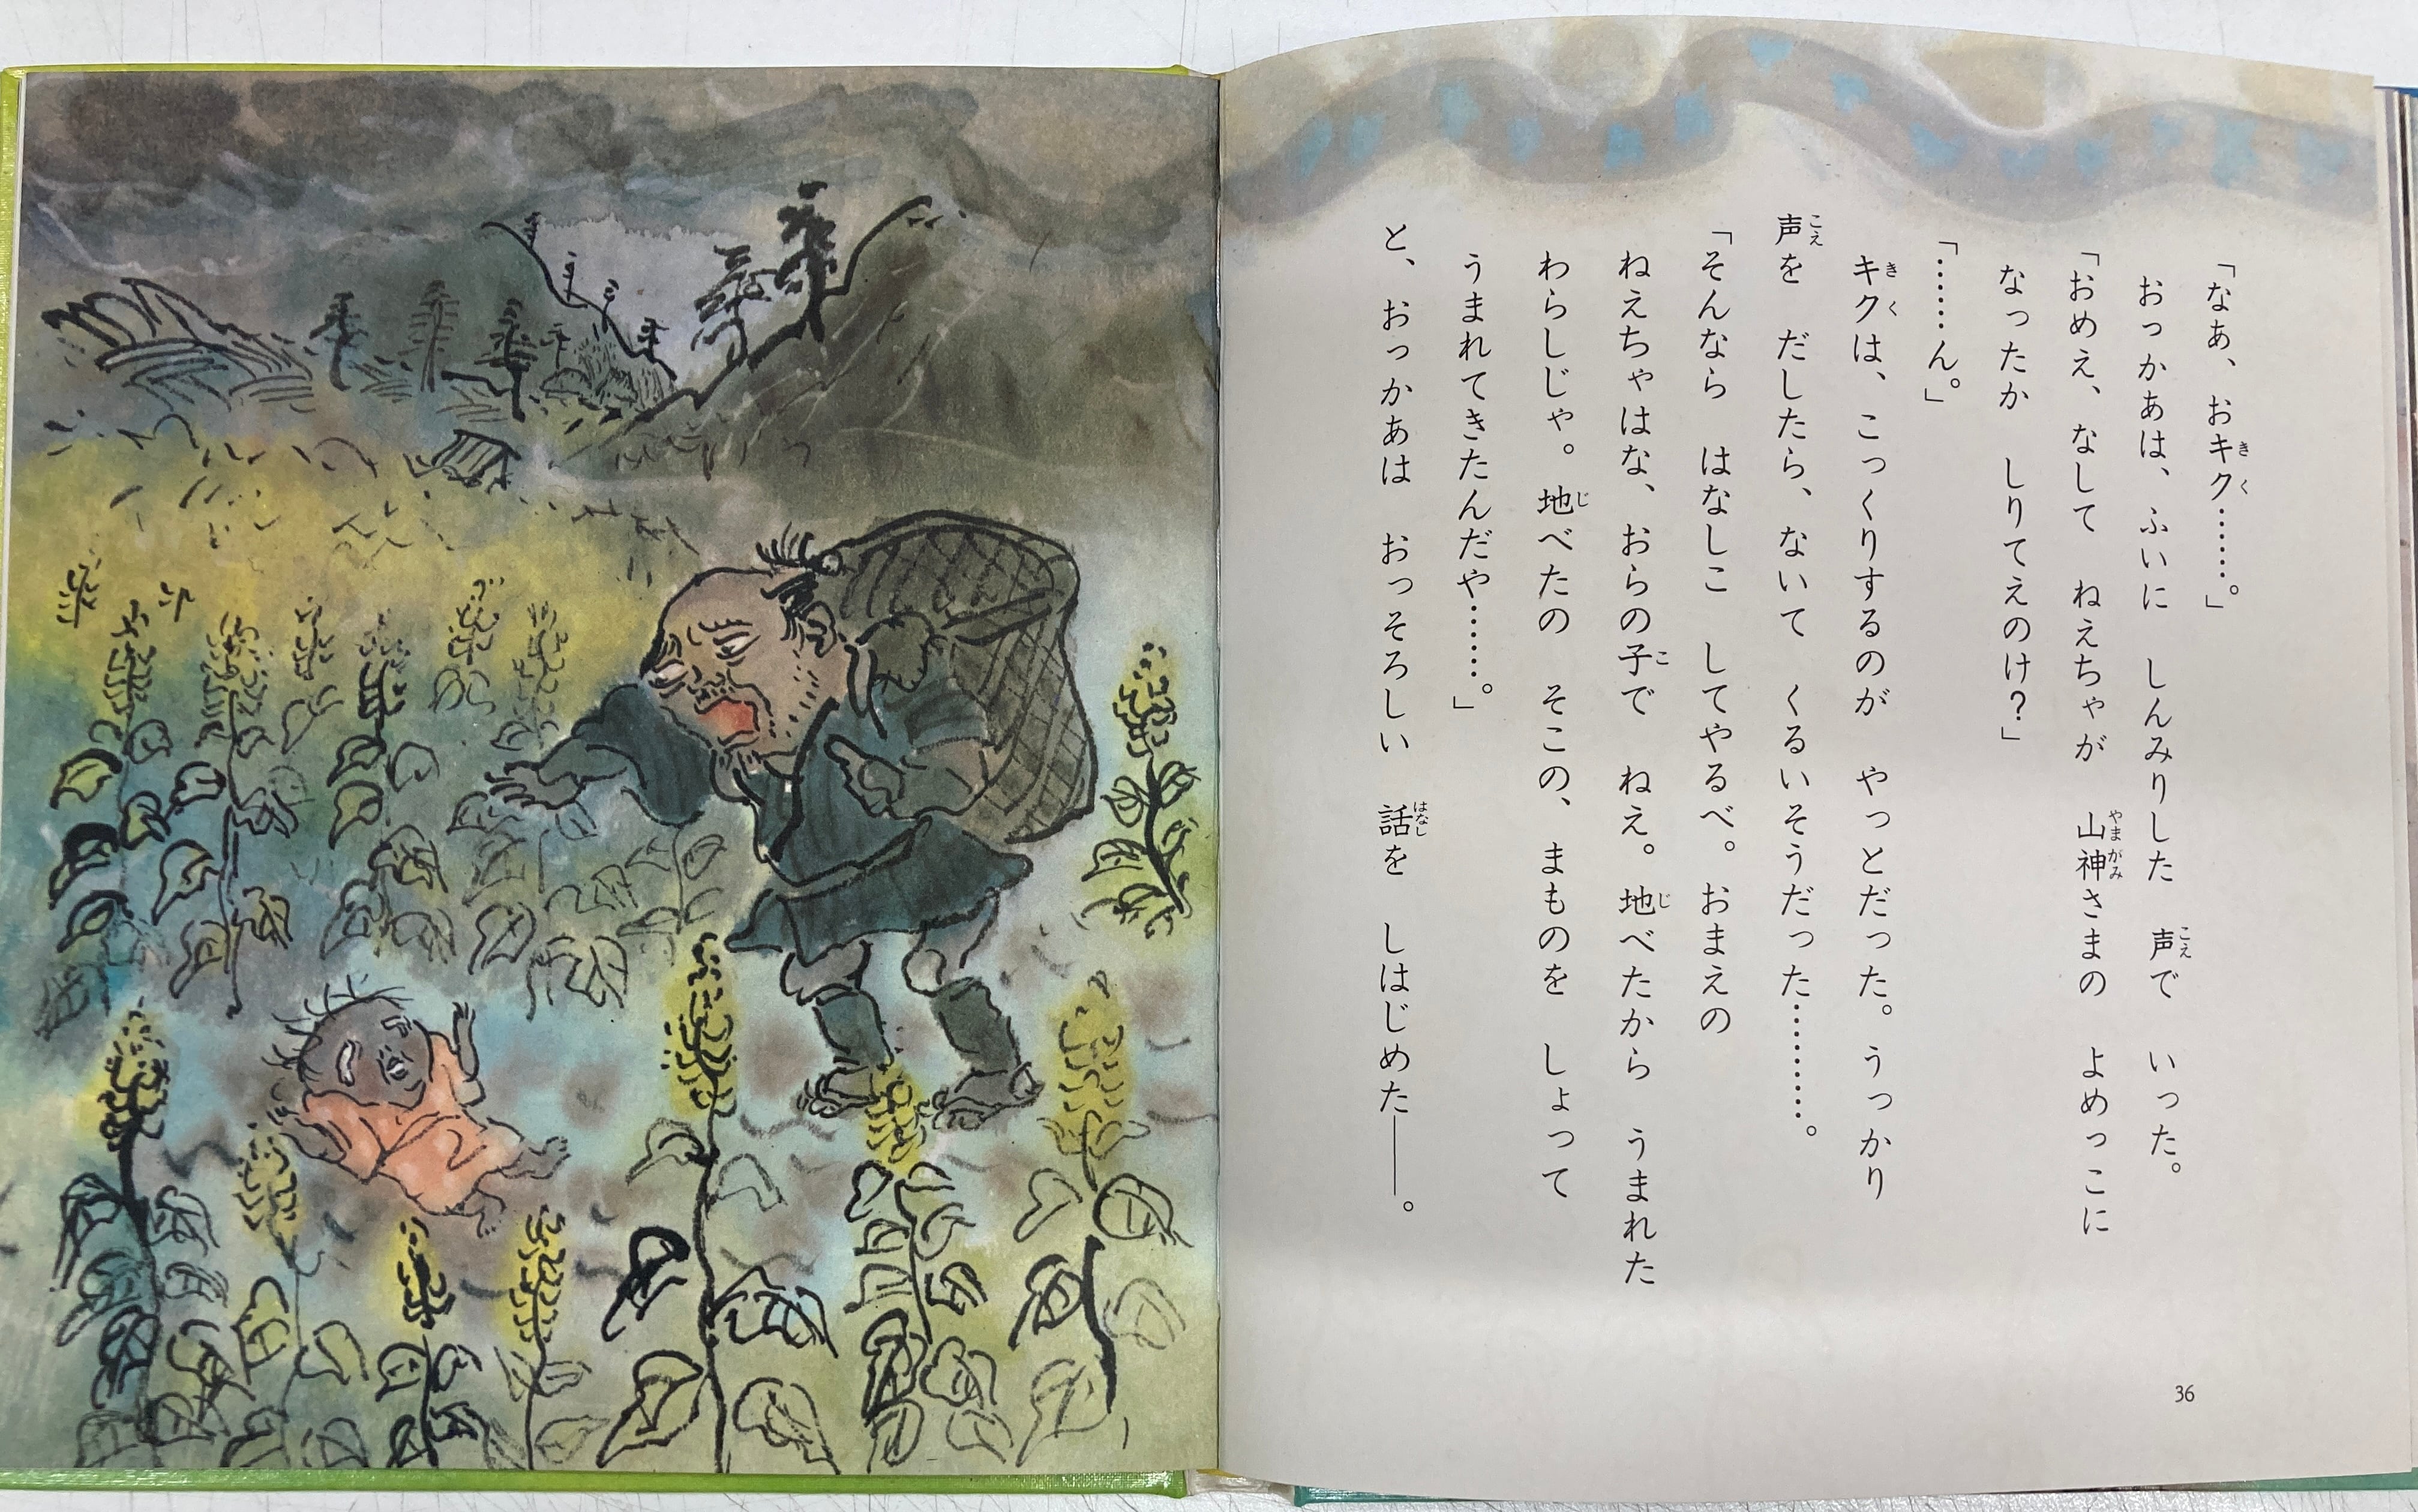 「なあ、おキク……。」
おっかあは、ふいに しんみりした 声で いった。
「おめえ、なして ねえちゃが 山神さまの よめっこに
なったか しりてえのけ?」
「……ん。」
キクは、こっくりするのが やっとだった。うっかり
声を だしたら、ないて くるいそうだった…………。
「そんなら はなしこ してやるべ。おまえの
ねえちゃはな、おらの子で ねえ。地べたから うまれた
わらしじゃ。地べたの そこの、まものを しょって
うまれてきたんだや……。」
と、おっかあは おっそろしい 話を しはじめた――。
36